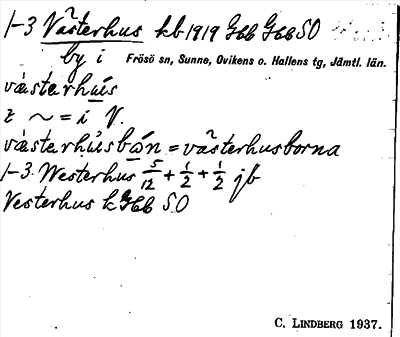 1-3 Västerhus kb 1919 Gbb GbbSO
by i Frösö sn, Sunne, Ovikens o. Hallens tg, Jämtl. län.
västerhús
z ~ = i V.
västerhúsbạn = västerhusborna
1-3. Westerhus 5/12 + 1/2 + 1/2 jb
Vesterhus k Gbb SO
C. LINDBERG 1937.